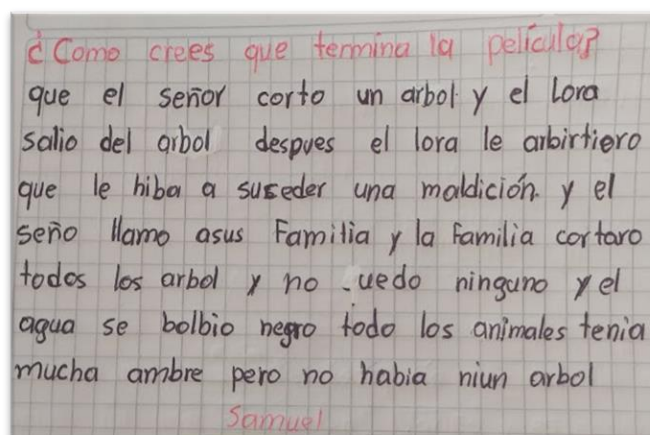 ¿Como crees que termina la película?
que el señor corto un arbol y el Lora
salio del arbol despues el lora le arbirtiero
que le hiba a suseder una maldición. y el
seño llamo asus Familia y la familia cortaro
todos los arbol y no uedo ninguno y el
agua se bolbio negro todo los animales tenia
mucha ambre pero no habia niun arbol
Samuel